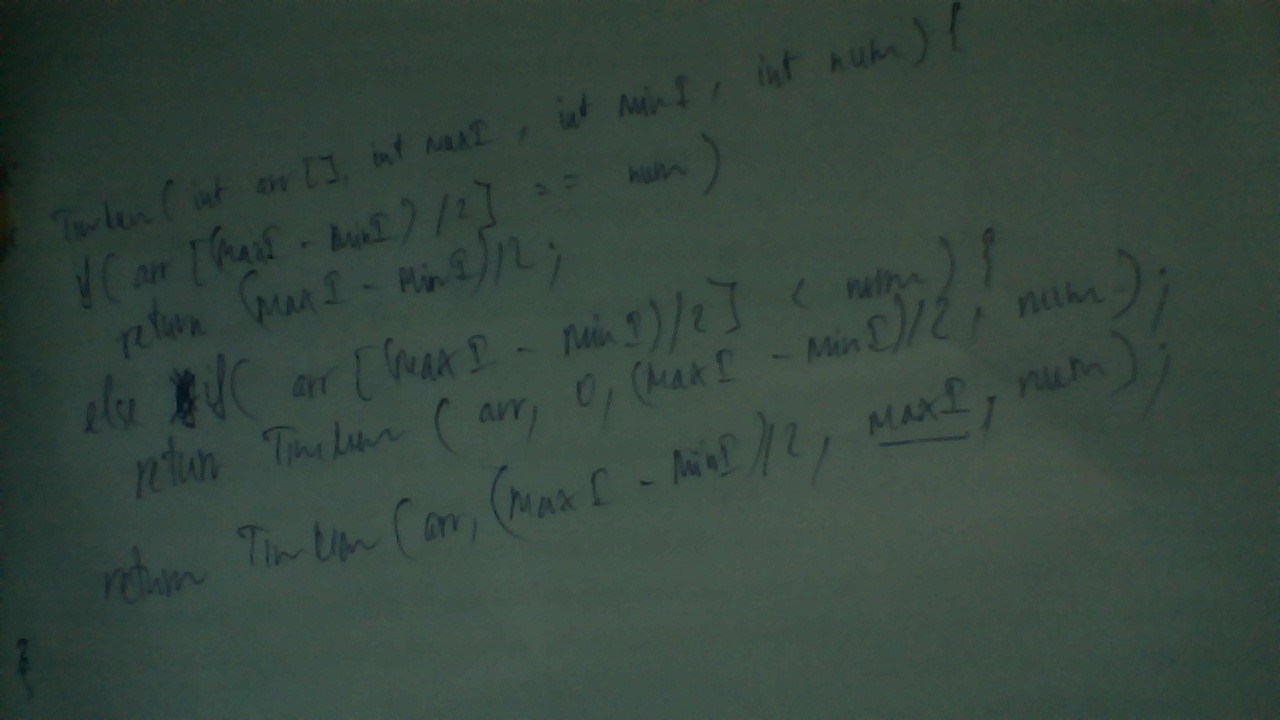 Timkiem ( int arr [], int maxI , int minI , int num ) {
if ( arr [(maxI - minI) /2] == num )
return (maxI - minI)/2 ;
else if ( arr [(maxI - minI)/2] < num ) {
return Timkiem ( arr, 0, (maxI - minI)/2, num );
return Timkiem (arr, (maxI - minI)/2, maxI, num );
}